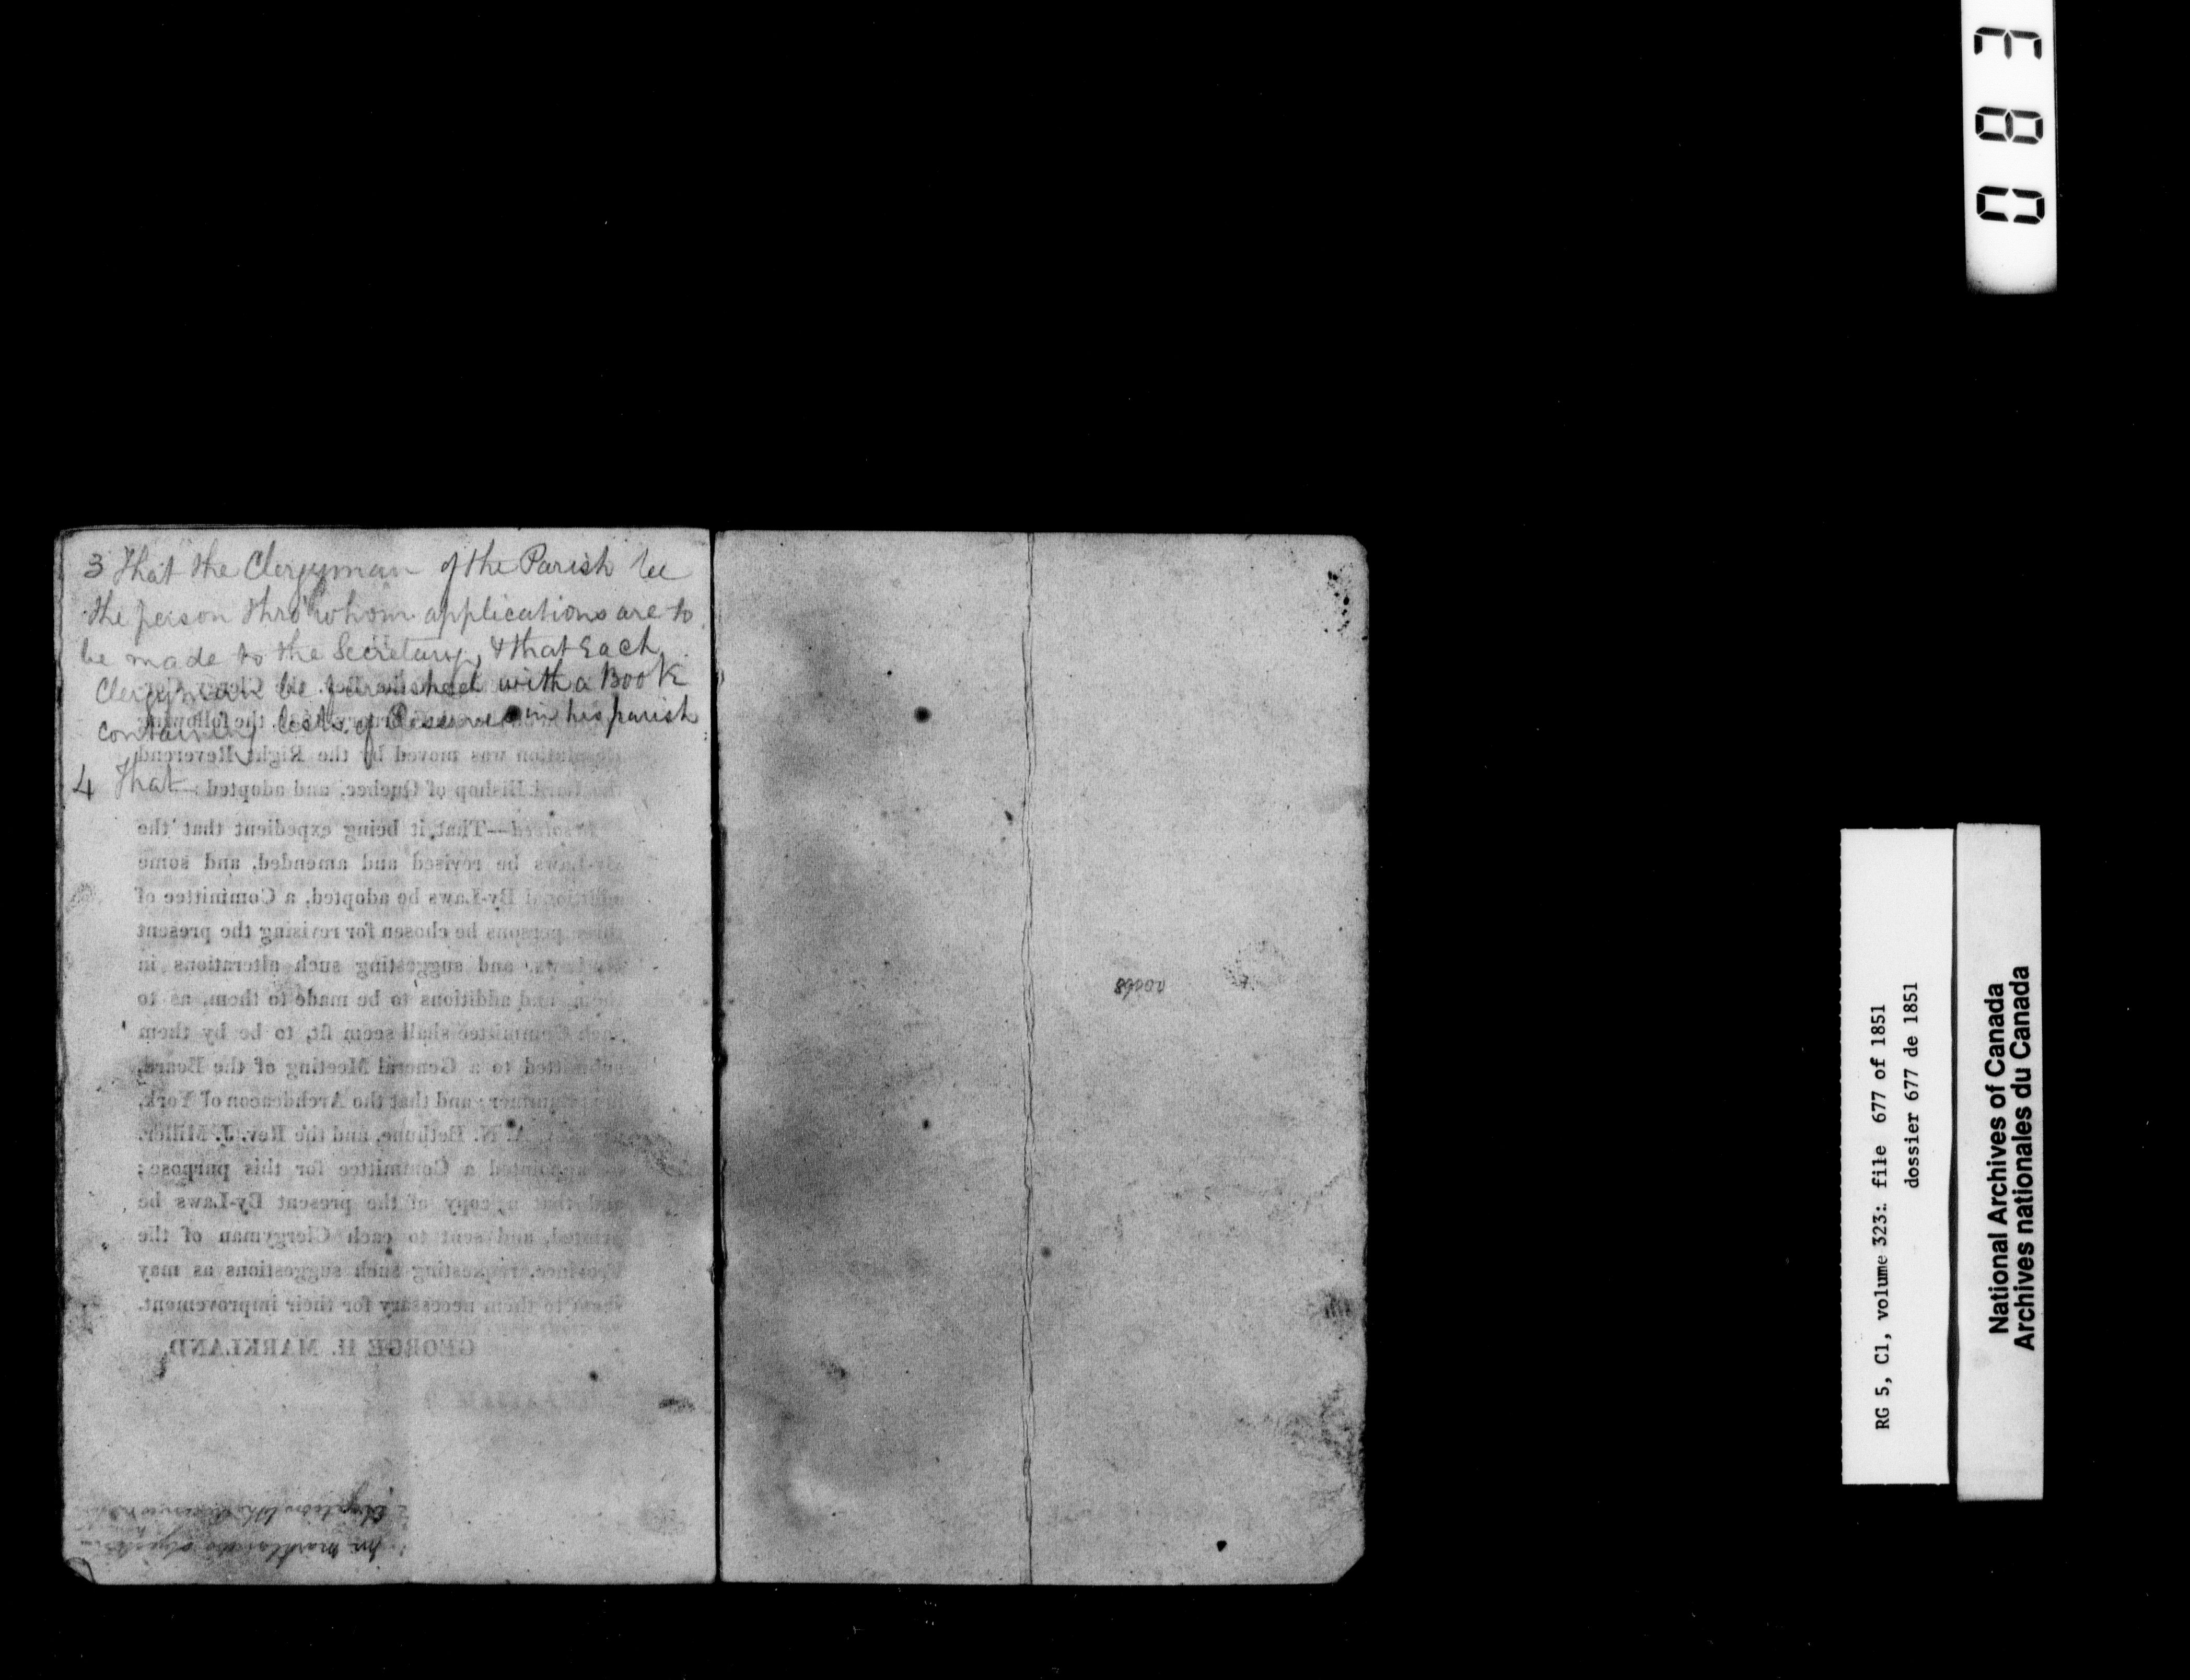 3 That the Clergyman of the Parish be
the person thro' whom applications are to
be made to the Secretary, & that Each
Clergyman be furnished with a Book
containing lists of Reserves in his parish
4 That
the following
Resolution was moved by the Right Reverend
the Lord Bishop of Quebec, and adopted:
Resolved—That it being expedient that the
By-Laws be revised and amended, and some
additional By-Laws be adopted, a Committee of
three persons be chosen for revising the present
By-Laws, and suggesting such alterations in
them, and additions to be made to them, as to
such Committee shall seem fit, to be by them
submitted to a General Meeting of the Board,
and that the Archdeacon of York,
A. N. Bethune, and the Rev. J. Miller,
appointed a Committee for this purpose;
and that a copy of the present By-Laws be
printed, and sent to each Clergyman of the
Province, requesting such suggestions as may
seem to them necessary for their improvement.
GEORGE H. MARKLAND,
083
RG 5, C1, volume 323: file 677 of 1851
dossier 677 de 1851
National Archives of Canada
Archives nationales du Canada